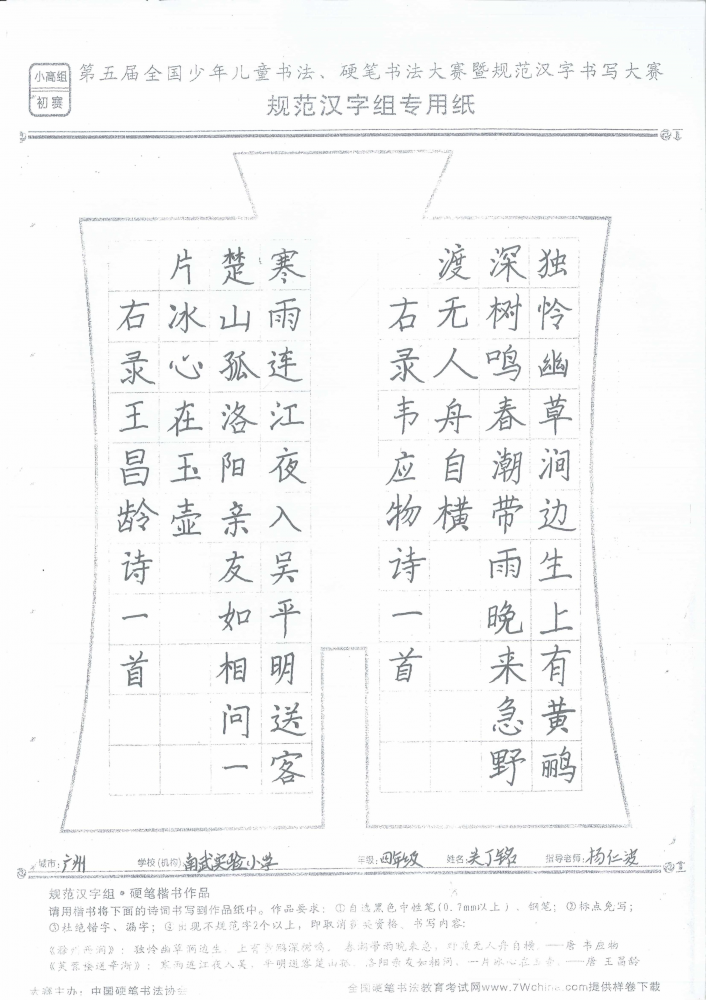 小高组
初赛
第五届全国少年儿童书法、硬笔书法大赛暨规范汉字书写大赛
规范汉字组专用纸
独怜幽草涧边生上有黄鹂
深树鸣春潮带雨晚来急野
渡无人舟自横
右录韦应物诗一首
寒雨连江夜入吴平明送客
楚山孤洛阳亲友如相问一
片冰心在玉壶
右录王昌龄诗一首
城市:广州 学校(机构):南武实验小学 年级:四年级 姓名: 指导老师:杨仁波
规范汉字组·硬笔楷书作品
请用楷书将下面的诗词书写到作品纸中。作品要求:①自选黑色中性笔(0.7mm以上)、钢笔;②标点免写;
③杜绝错字、漏字;④出现不规范字2个以上,即取消获奖资格。书写内容:
《滁州西涧》:独怜幽草涧边生,上有黄鹂深树鸣。春潮带雨晚来急,野渡无人舟自横。——唐 韦应物
《芙蓉楼送辛渐》:寒雨连江夜入吴,平明送客楚山孤。洛阳亲友如相问,一片冰心在玉壶。——唐 王昌龄
大赛主办:中国硬笔书法协会 全国硬笔书法教育考试网www.7Wchina.com提供样卷下载